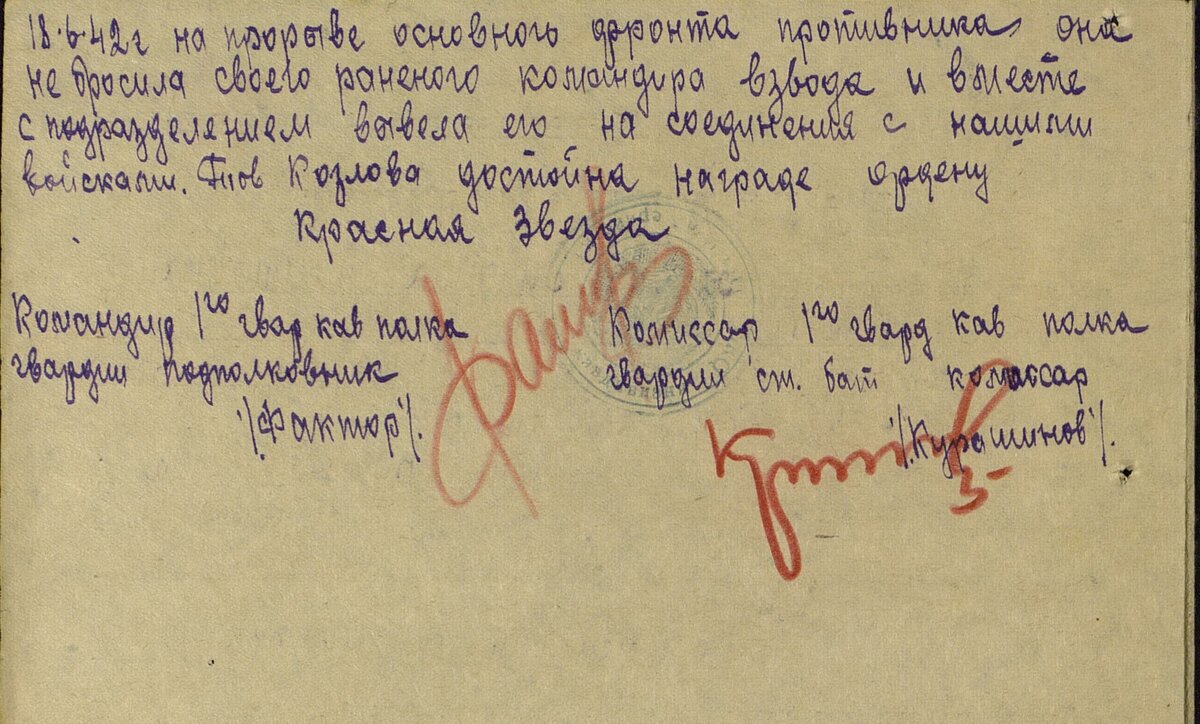 18·6·42г на прорыве основного фронта противника она
не бросила своего раненого командира взвода и вместе
с подразделением вывела его на соединения с нашими
войсками. Тов Козлова достойна награде ордену
Красная Звезда
Командир 1го гвар кав полка
гвардии подполковник
/Фактор/.
Комиссар 1го гвард кав полка
гвардии ст. бат комиссар
/Курашинов/.